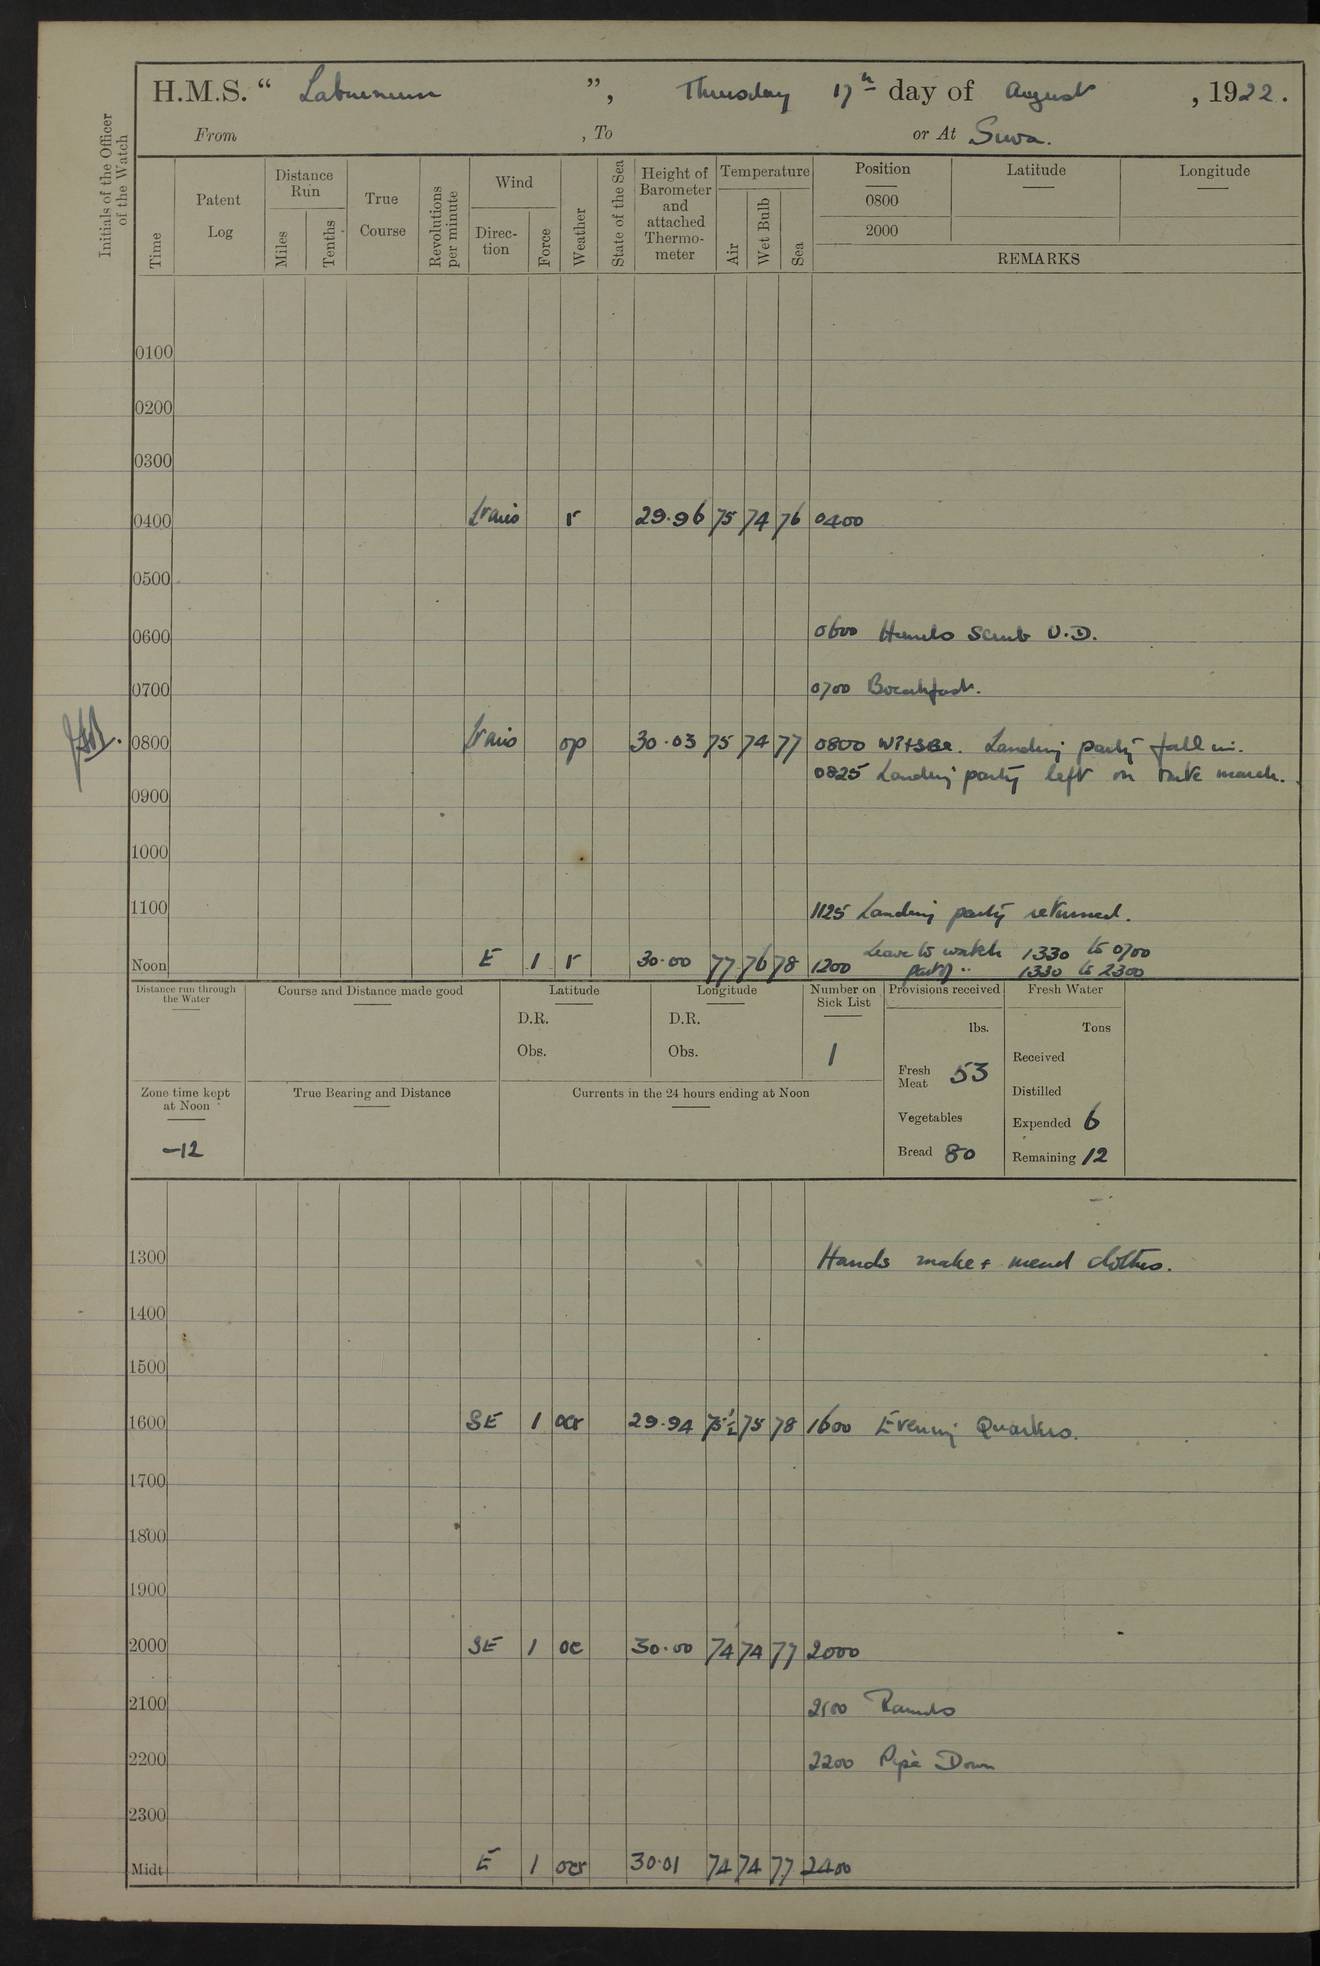 H.M.S. “ Laburnum ”, Thursday 17th day of August, 1922.
From , To or At Suva.
Initials of the Officer of the Watch
Time
Patent Log
Distance Run
Miles
Tenths
True Course
Revolutions per minute
Wind
Direction
Force
Weather
State of the Sea
Height of Barometer and attached Thermometer
Temperature
Air
Wet Bulb
Sea
Position
0800
2000
Latitude
Longitude
REMARKS
0100
0200
0300
0400 r 29.96 75 74 76 0400
0500
0600 0600 Hands scrub U.D.
0700 0700 Breakfast.
0800 op 30.03 75 74 77 0800 Landing party fall in.
0825 Landing party left on route march.
0900
1000
1100
1125 Landing party returned.
Noon E 1 r 30.00 77 76 78 1200 Leave to watch 1330 to 0700
party " 1330 to 2300
Distance run through the Water
Course and Distance made good
Latitude
D.R.
Obs.
Longitude
D.R.
Obs.
Number on Sick List
1
Provisions received
lbs.
Fresh Meat 53
Vegetables
Bread 80
Fresh Water
Tons
Received
Distilled
Expended 6
Remaining 12
Zone time kept at Noon
-12
True Bearing and Distance
Currents in the 24 hours ending at Noon
1300 Hands make + mend clothes.
1400
1500
1600 SE 1 ocr 29.94 75½ 75 78 1600 Evening Quarters.
1700
1800
1900
2000 SE 1 oc 30.00 74 74 77 2000
2100 2100 Rounds
2200 2200 Pipe Down
2300
Midt E 1 ocr 30.01 74 74 77 2400